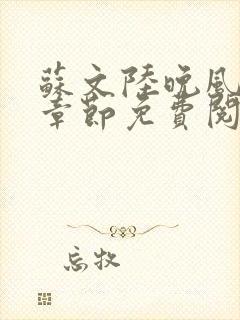 蘇文陸晚風
章節免費閱
忘牧